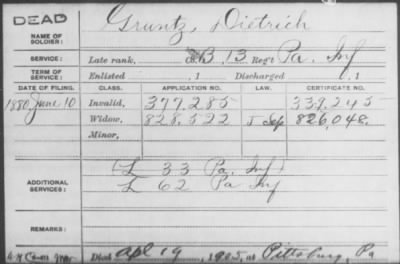 DEAD
NAME OF SOLDIER: Gruntz, Dietrich
SERVICE: Late rank, Co. B, 13 Reg't Pa. Inf
TERM OF SERVICE: Enlisted , 1 Discharged , 1
DATE OF FILING. CLASS. APPLICATION NO. LAW. CERTIFICATE NO.
1880 June 10 Invalid, 377.285 339.245
Widow, 828.522 826,048.
Minor,
ADDITIONAL SERVICES: L 33 Pa. Inf
L 62 Pa Inf
REMARKS:
Died Apl 19, 1905, at Pittsburg, Pa